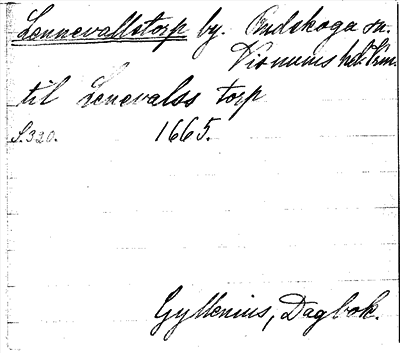 Lennevallstorp by. Rudskoga sn.
Visnums hd Vrm.
til Lenevalss torp
S. 320. 1665.
Gyllenius, Dagbok.